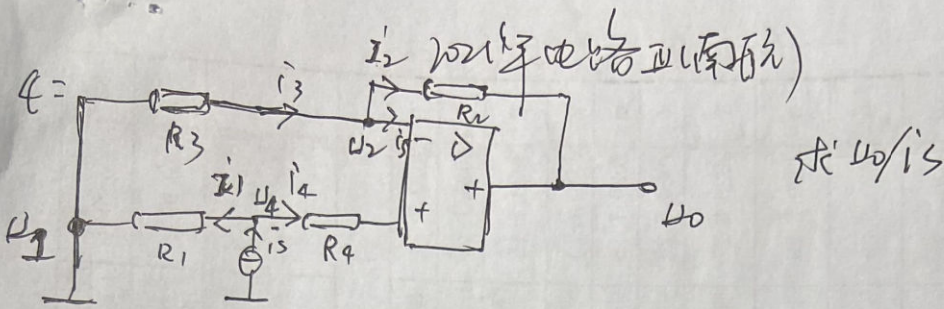 2021年电路II(南航)
4=
i3
I2
R2
R3
u2
i5
-
▷
求 u0/is
I1
u4
i4
+
+
u0
u1
R1
is
R4